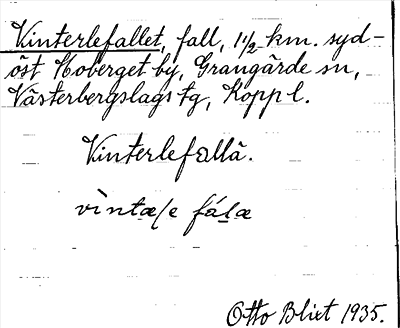 Vinterlefallet, fall, 1 1/2 km. syd-
öst Hoberget by, Grangärde sn,
Västerbergslags tg, Kopp l.
Vinterlefallä.
vìntæle fáʟæ
Otto Blixt 1935.